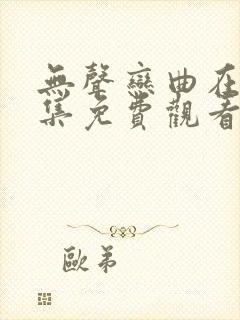 無聲戀曲在
集免費觀看
歐弟